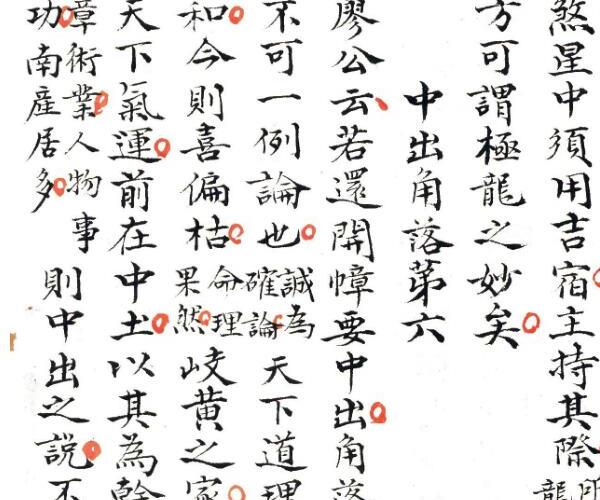 煞星中須用吉宿主持其際
龍
方可謂極龍之妙矣
中出角落第六
廖公云若還開幛要中出角落
不可一例論也
誠為
確論
天下道理
和今則喜偏枯
命理
果然
岐黄之家
天下氣運前在中土以其為幹
章術業人物事
功南産居多
則中出之説不